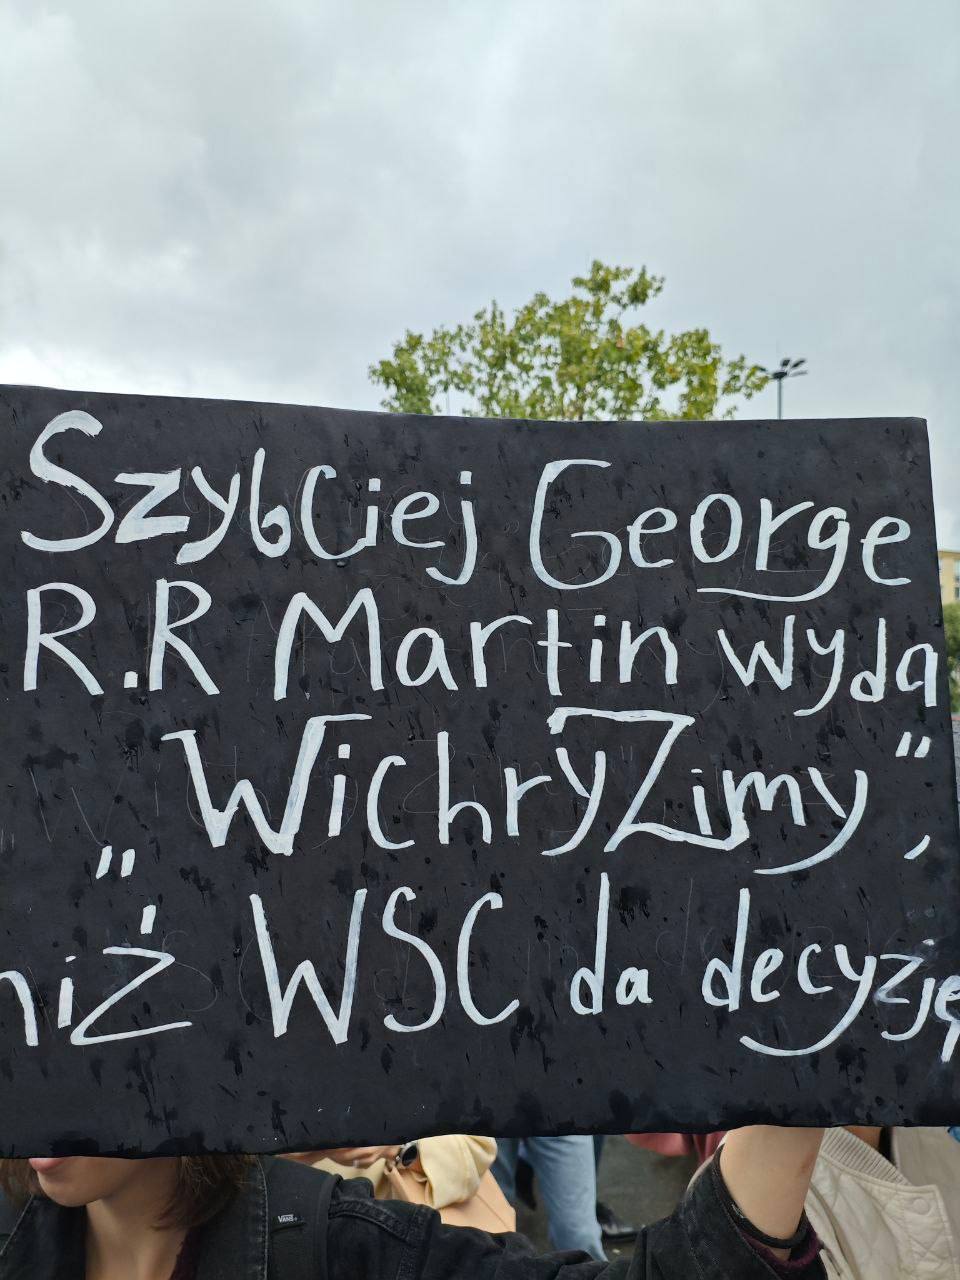 Szybciej George
R.R Martin wyda
"Wichry Zimy",
niż WSC da decyzję
VANS